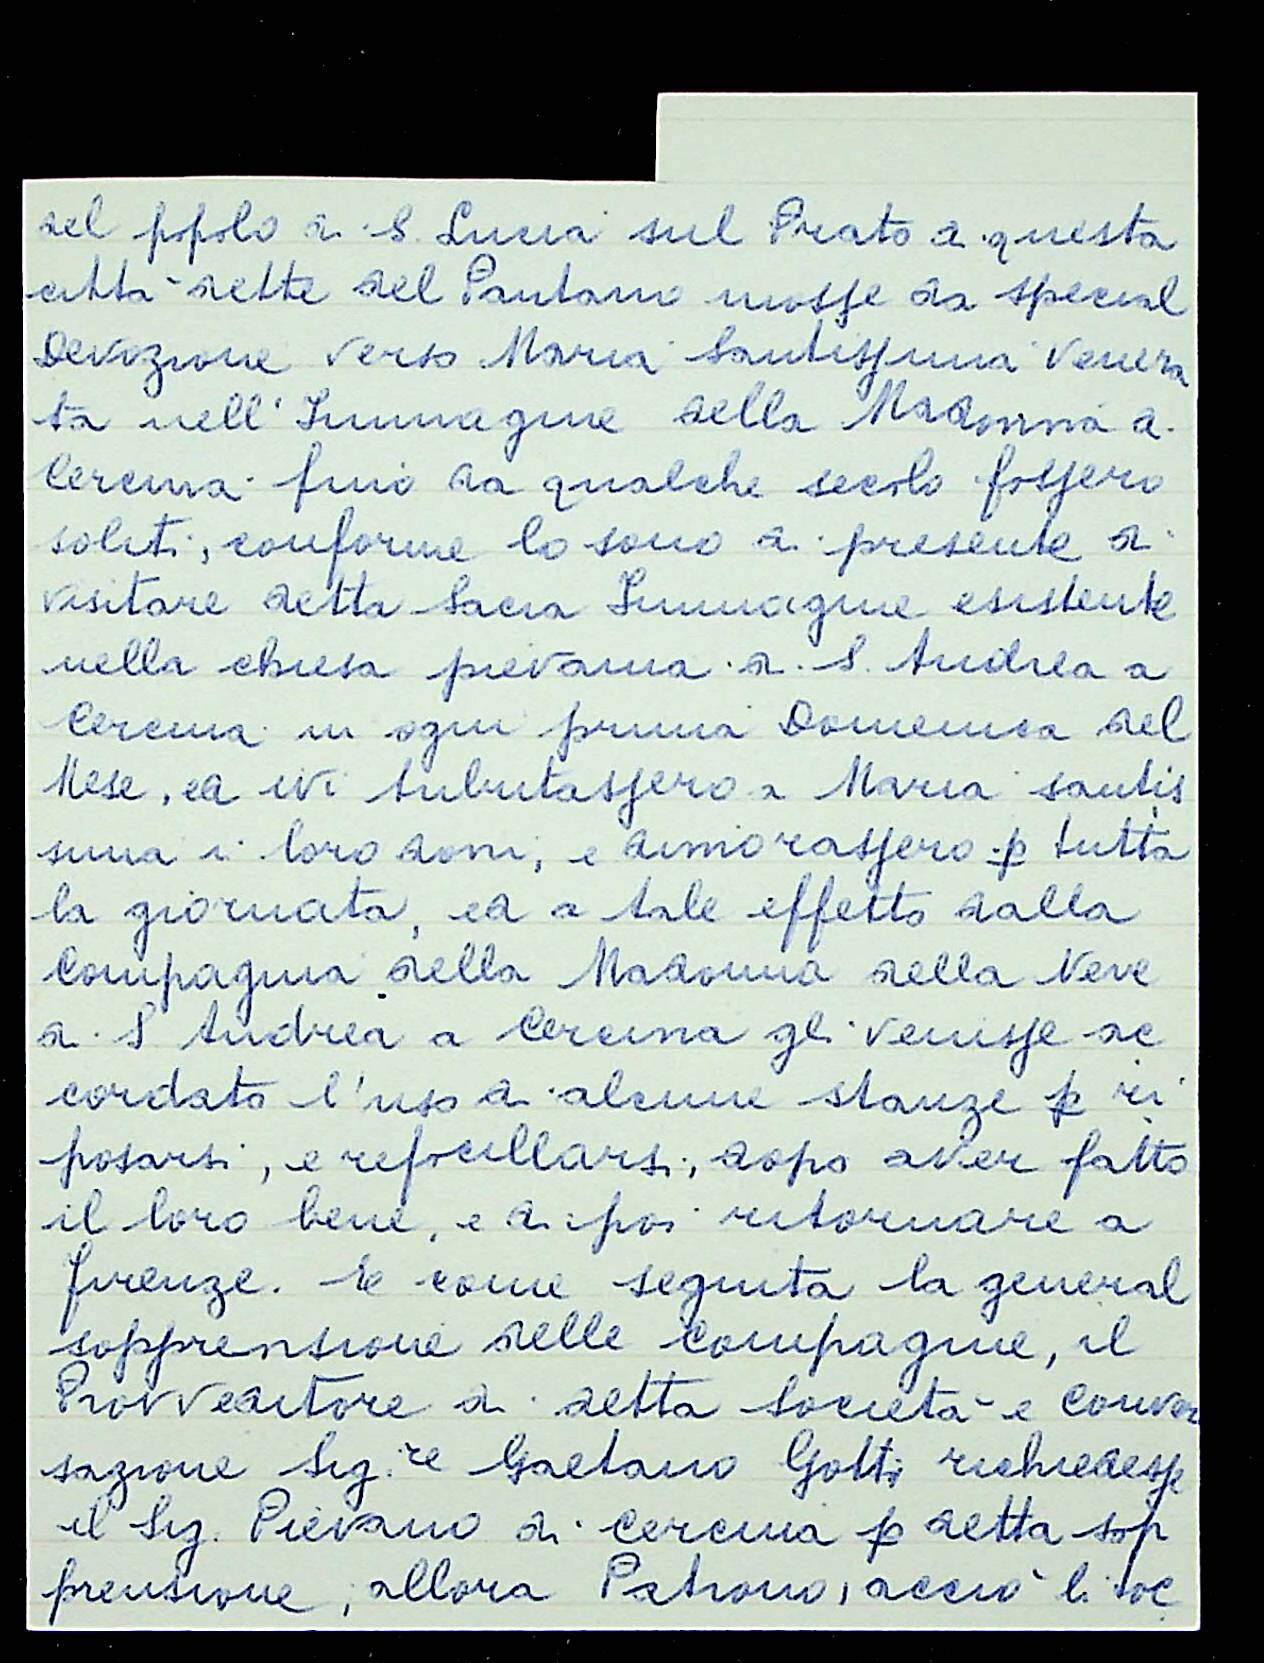 del popolo di S. Lucia sul Prato di questa
città dette del Pantano mosse da special
Devozione verso Maria Santissima Venera
ta nell'Immagine della Madonna di
Cercina fino da qualche secolo fossero
soliti, conforme lo sono di presente di
visitare detta Sacra Immagine esistente
nella chiesa pievania di S. Andrea a
Cercina in ogni prima Domenica del
Mese, ed ivi tributassero a Maria santis
sima i loro doni, e dimorassero p tutta
la giornata, ed a tale effetto dalla
Compagnia della Madonna della Neve
di S Andrea a Cercina gli venisse ac
cordato l'uso di alcune stanze p ri
posarsi, e refocillarsi, dopo aver fatto
il loro bene, e di poi ritornare a
Firenze. E come seguita la general
soppressione delle Compagnie, il
Provveditore di detta Società e Conver
sazione Sig.re Gaetano Gotti richiedesse
il Sig. Pievano di Cercina p detta sop
pressione, allora Patrono, acciò li toc